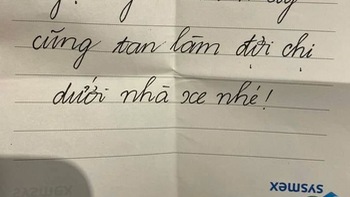 cũng tan làm đợi chị
dưới nhà xe nhé!
sysmex